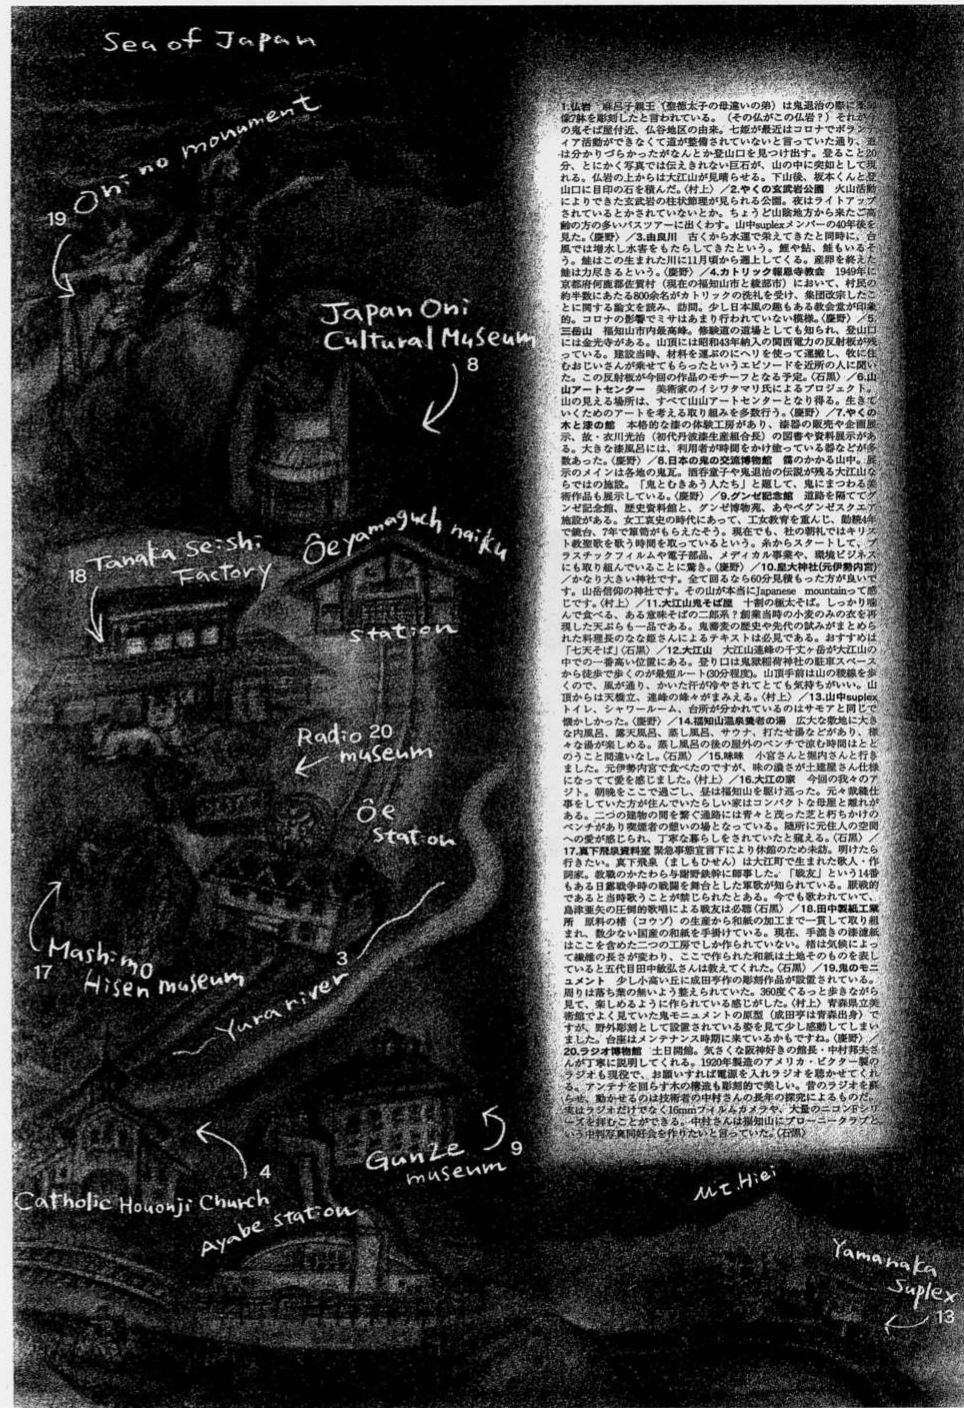 Sea of Japan
Oni no monument
19
Japan Oni
Cultural Museum
8
Tanaka Seishi
Factory
18
Ôeyamaguch naiku
station
Radio 20
museum
Ôe
station
Mashimo
Hisen museum
17
3
Yura river
Gunze
museum
9
4
Catholic Houonji Church
Ayabe station
Mt. Hiei
Yamanaka
Suplex
13
1.仏岩 麻呂子親王（聖徳太子の母違いの弟）は鬼退治の際に
像7躰を彫刻したと言われている。（その仏がこの仏岩？）それが
の鬼そば屋付近、仏谷地区の由来。七姫が最近はコロナでボラン
ィア活動ができなくて道が整備されていないと言っていた通り、道
は分かりづらかったがなんとか登山口を見つけ出す。登ること20
分、とにかく写真では伝えきれない巨石が、山の中に突如として現
れる。仏岩の上からは大江山が見晴らせる。下山後、坂本くんと登
山口に目印の石を積んだ。〈村上〉／2.やくの玄武岩公園 火山活動
によりできた玄武岩の柱状節理が見られる公園。夜はライトアップ
されているとかされていないとか。ちょうど山陰地方から来たご高
齢の方の多いバスツアーに出くわす。山中suplexメンバーの40年後を
見た。〈慶野〉／3.由良川 古くから水運で栄えてきたと同時に、台
風では増水し水害をもたらしてきたという。鯉や鮎、鮭もいるそ
う。鮭はこの生まれた川に11月頃から遡上してくる。産卵を終えた
鮭は力尽きるという。〈慶野〉／4.カトリック報恩寺教会 1949年に
京都府何鹿郡佐賀村（現在の福知山市と綾部市）において、村民の
約半数にあたる800余名がカトリックの洗礼を受け、集団改宗したこ
とに関する論文を読み、訪問。少し日本風の趣もある教会堂が印象
的。コロナの影響でミサはあまり行われていない模様。〈慶野〉／5.
三岳山 福知山市内最高峰。修験道の道場としても知られ、登山口
には金光寺がある。山頂には昭和43年納入の関西電力の反射板が残
っている。建設当時、材料を運ぶのにヘリを使って運搬し、牧に住
むおじいさんが乗せてもらったというエピソードを近所の人に聞い
た。この反射板が今回の作品のモチーフとなる予定。〈石黒〉／6.山
山アートセンター 美術家のイシワタマリ氏によるプロジェクト。
山の見える場所は、すべて山山アートセンターとなり得る。生きて
いくためのアートを考える取り組みを多数行う。〈慶野〉／7.やくの
木と漆の館 本格的な漆の体験工房があり、漆器の販売や企画展
示、故・衣川光治（初代丹波漆生産組合長）の図書や資料展示があ
る。大きな漆風呂には、利用者が時間をかけ塗っている器などが多
数あった。〈慶野〉／8.日本の鬼の交流博物館 霧のかかる山中。展
示のメインは各地の鬼瓦。酒呑童子や鬼退治の伝説が残る大江山な
らではの施設。「鬼とむきあう人たち」と題して、鬼にまつわる美
術作品も展示している。〈慶野〉／9.グンゼ記念館 道路を隔ててグ
ンゼ記念館、歴史資料館と、グンゼ博物苑、あやべグンゼスクエア
施設がある。女工哀史の時代にあって、工女教育を重んじ、勤続4年
で鏡台、7年で箪笥がもらえたそう。現在でも、社の朝礼ではキリス
ト教聖歌を歌う時間を取っているという。糸からスタートして、プ
ラスチックフィルムや電子部品、メディカル事業や、環境ビジネス
にも取り組んでいることに驚き。〈慶野〉／10.皇大神社(元伊勢内宮)
／かなり大きい神社です。全て回るなら60分見積もった方が良いで
す。山岳信仰の神社です。その山が本当にJapanese mountainって感
じです。〈村上〉／11.大江山鬼そば屋 十割の極太そば。しっかり噛
んで食べる、ある意味そばの二郎系？創業当時の小麦のみの衣を再
現した天ぷらも一品である。鬼蕎麦の歴史や先代の試みがまとめら
れた料理長のなな姫さんによるテキストは必見である。おすすめは
「七天そば」〈石黒〉／12.大江山 大江山連峰の千丈ヶ岳が大江山の
中での一番高い位置にある。登り口は鬼嶽稲荷神社の駐車スペース
から徒歩で歩くのが最短ルート(30分程度)。山頂手前は山の稜線を歩
くので、風が通り、かいた汗が冷やされてとても気持ちがいい。山
頂からは天橋立、連峰の峰々がまみえる。〈村上〉／13.山中suplex
トイレ、シャワールーム、台所が分かれているのはサモアと同じで
懐かしかった。〈慶野〉／14.福知山温泉養老の湯 広大な敷地に大き
な内風呂、露天風呂、蒸し風呂、サウナ、打たせ湯などがあり、様
々な湯が楽しめる。蒸し風呂の後の屋外のベンチで涼む時間はとと
のうこと間違いなし。〈石黒〉／15.味味 小宮さんと堀内さんと行き
ました。元伊勢内宮で食べたのですが、味の濃さが土建屋さん仕様
になってて愛を感じました。〈村上〉／16.大江の家 今回の我々のア
ジト。朝晩をここで過ごし、昼は福知山を駆け巡った。元々裁縫仕
事をしていた方が住んでいたらしい家はコンパクトな母屋と離れが
ある。二つの建物の間を繋ぐ通路には青々と茂った芝と朽ちかけの
ベンチがあり喫煙者の憩いの場となっている。随所に元住人の空間
への愛が感じられ、丁寧な暮らしをされていたと窺える。〈石黒〉／
17.真下飛泉資料室 緊急事態宣言下により休館のため未訪。明けたら
行きたい。真下飛泉（ましもひせん）は大江町で生まれた歌人・作
詞家。教職のかたわら与謝野鉄幹に師事した。「戦友」という14番
もある日露戦争時の戦闘を舞台とした軍歌が知られている。厭戦的
であると当時歌うことが禁じられたとある。今でも歌われていて、
島津亜矢の圧倒的歌唱による戦友は必聴〈石黒〉／18.田中製紙工業
所 原料の楮（コウゾ）の生産から和紙の加工まで一貫して取り組
まれ、数少ない国産の和紙を手掛けている。現在、手漉きの漆濾紙
はここを含めた二つの工房でしか作られていない。楮は気候によっ
て繊維の長さが変わり、ここで作られた和紙は土地そのものを表し
ていると五代目田中敏弘さんは教えてくれた。〈石黒〉／19.鬼のモニ
ュメント 少し小高い丘に成田亨作の彫刻作品が設置されている。
周りは落ち葉の無いよう整えられていた。360度ぐるっと歩きながら
見て、楽しめるように作られている感じがした。〈村上〉青森県立美
術館でよく見ていた鬼モニュメントの原型（成田亨は青森出身）で
すが、野外彫刻として設置されている姿を見て少し感動してしまい
ました。台座はメンテナンス時期に来ているかもですね。〈慶野〉／
20.ラジオ博物館 土日開館。気さくな阪神好きの館長・中村邦夫さ
んが丁寧に説明してくれる。1920年製造のアメリカ・ビクター製の
ラジオも現役で、お願いすれば電源を入れラジオを聴かせてくれ
る。アンテナを回らす木の構造も彫刻的で美しい。昔のラジオを蘇
らせ、動かせるのは技術者の中村さんの長年の探究によるものだ。
実はラジオだけでなく16mmフィルムカメラや、大量のニコンFシリ
ーズを拝むことができる。中村さんは福知山にブローニークラブと
いう中判写真同好会を作りたいと言っていた。〈石黒〉